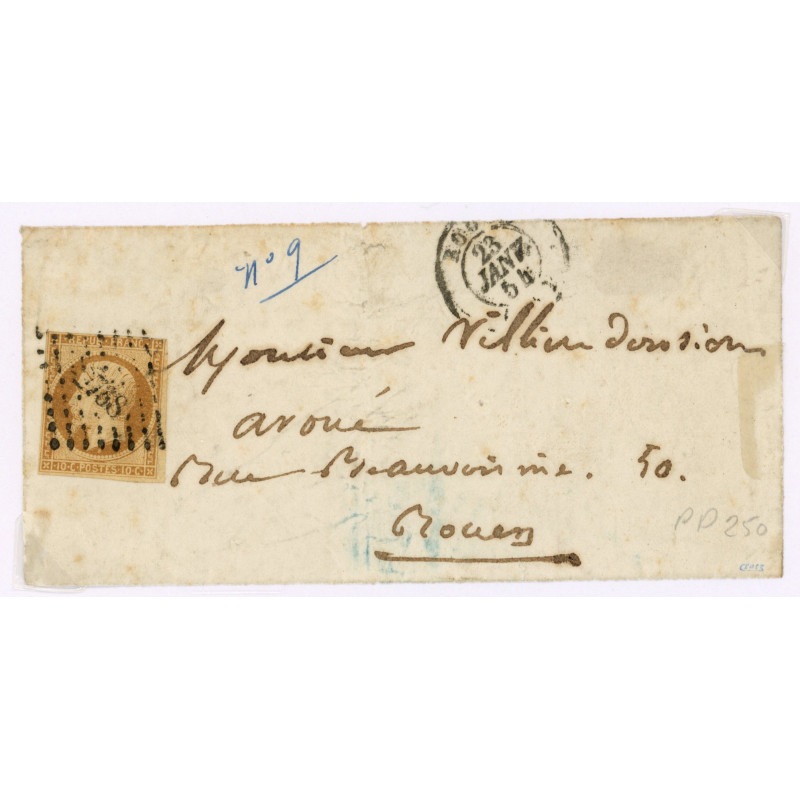 n° 9
ROU
23
JANV
54
REPUB FRANC
2738
10 · C · POSTES · 10 · C
Monsieur Villiers
avoué
Rue Beauvoisine. 50.
Rouen
PD 250